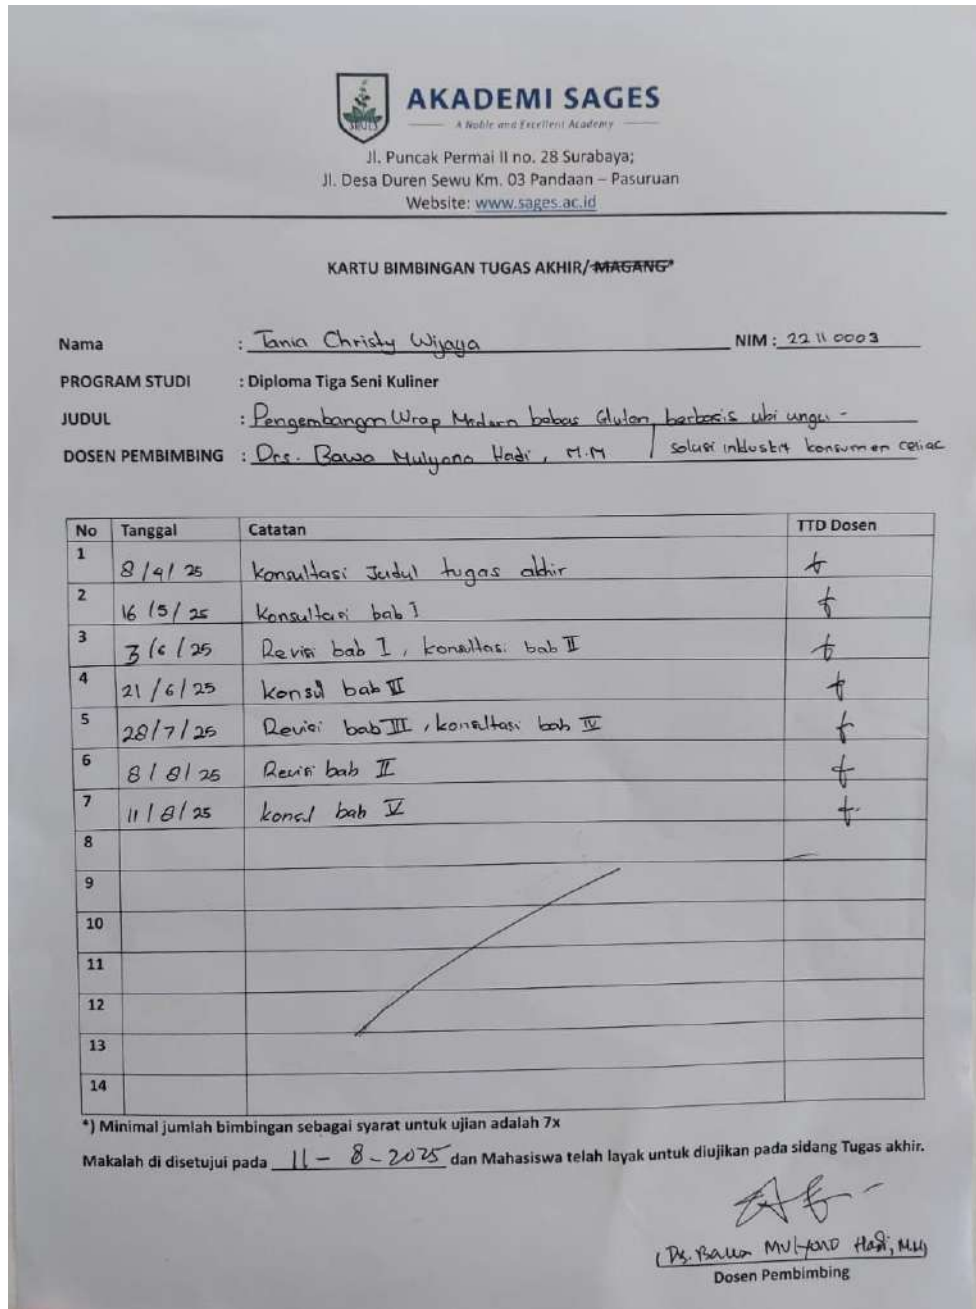 SAGES
AKADEMI SAGES
A Noble and Excellent Academy
Jl. Puncak Permai II no. 28 Surabaya;
Jl. Desa Duren Sewu Km. 03 Pandaan – Pasuruan
Website: www.sages.ac.id
KARTU BIMBINGAN TUGAS AKHIR/ MAGANG*
Nama : Tania Christy Wijaya NIM : 22110003
PROGRAM STUDI : Diploma Tiga Seni Kuliner
JUDUL : Pengembangan Wrap Modern bebas Gluten, berbasis ubi ungu -
solusi industri konsumen celiac
DOSEN PEMBIMBING : Drs. Bawa Mulyono Hadi, M.M
No Tanggal Catatan TTD Dosen
1 8/4/25 Konsultasi Judul tugas akhir
2 16/5/25 Konsultasi bab I
3 3/6/25 Revisi bab I, konsultasi bab II
4 21/6/25 konsul bab III
5 28/7/25 Revisi bab III, konsultasi bab IV
6 8/8/25 Revisi bab II
7 11/8/25 konsul bab V
8
9
10
11
12
13
14
*) Minimal jumlah bimbingan sebagai syarat untuk ujian adalah 7x
Makalah di disetujui pada 11 - 8 - 2025 dan Mahasiswa telah layak untuk diujikan pada sidang Tugas akhir.
(Drs. Bawa MULYONO Hadi, M.M)
Dosen Pembimbing